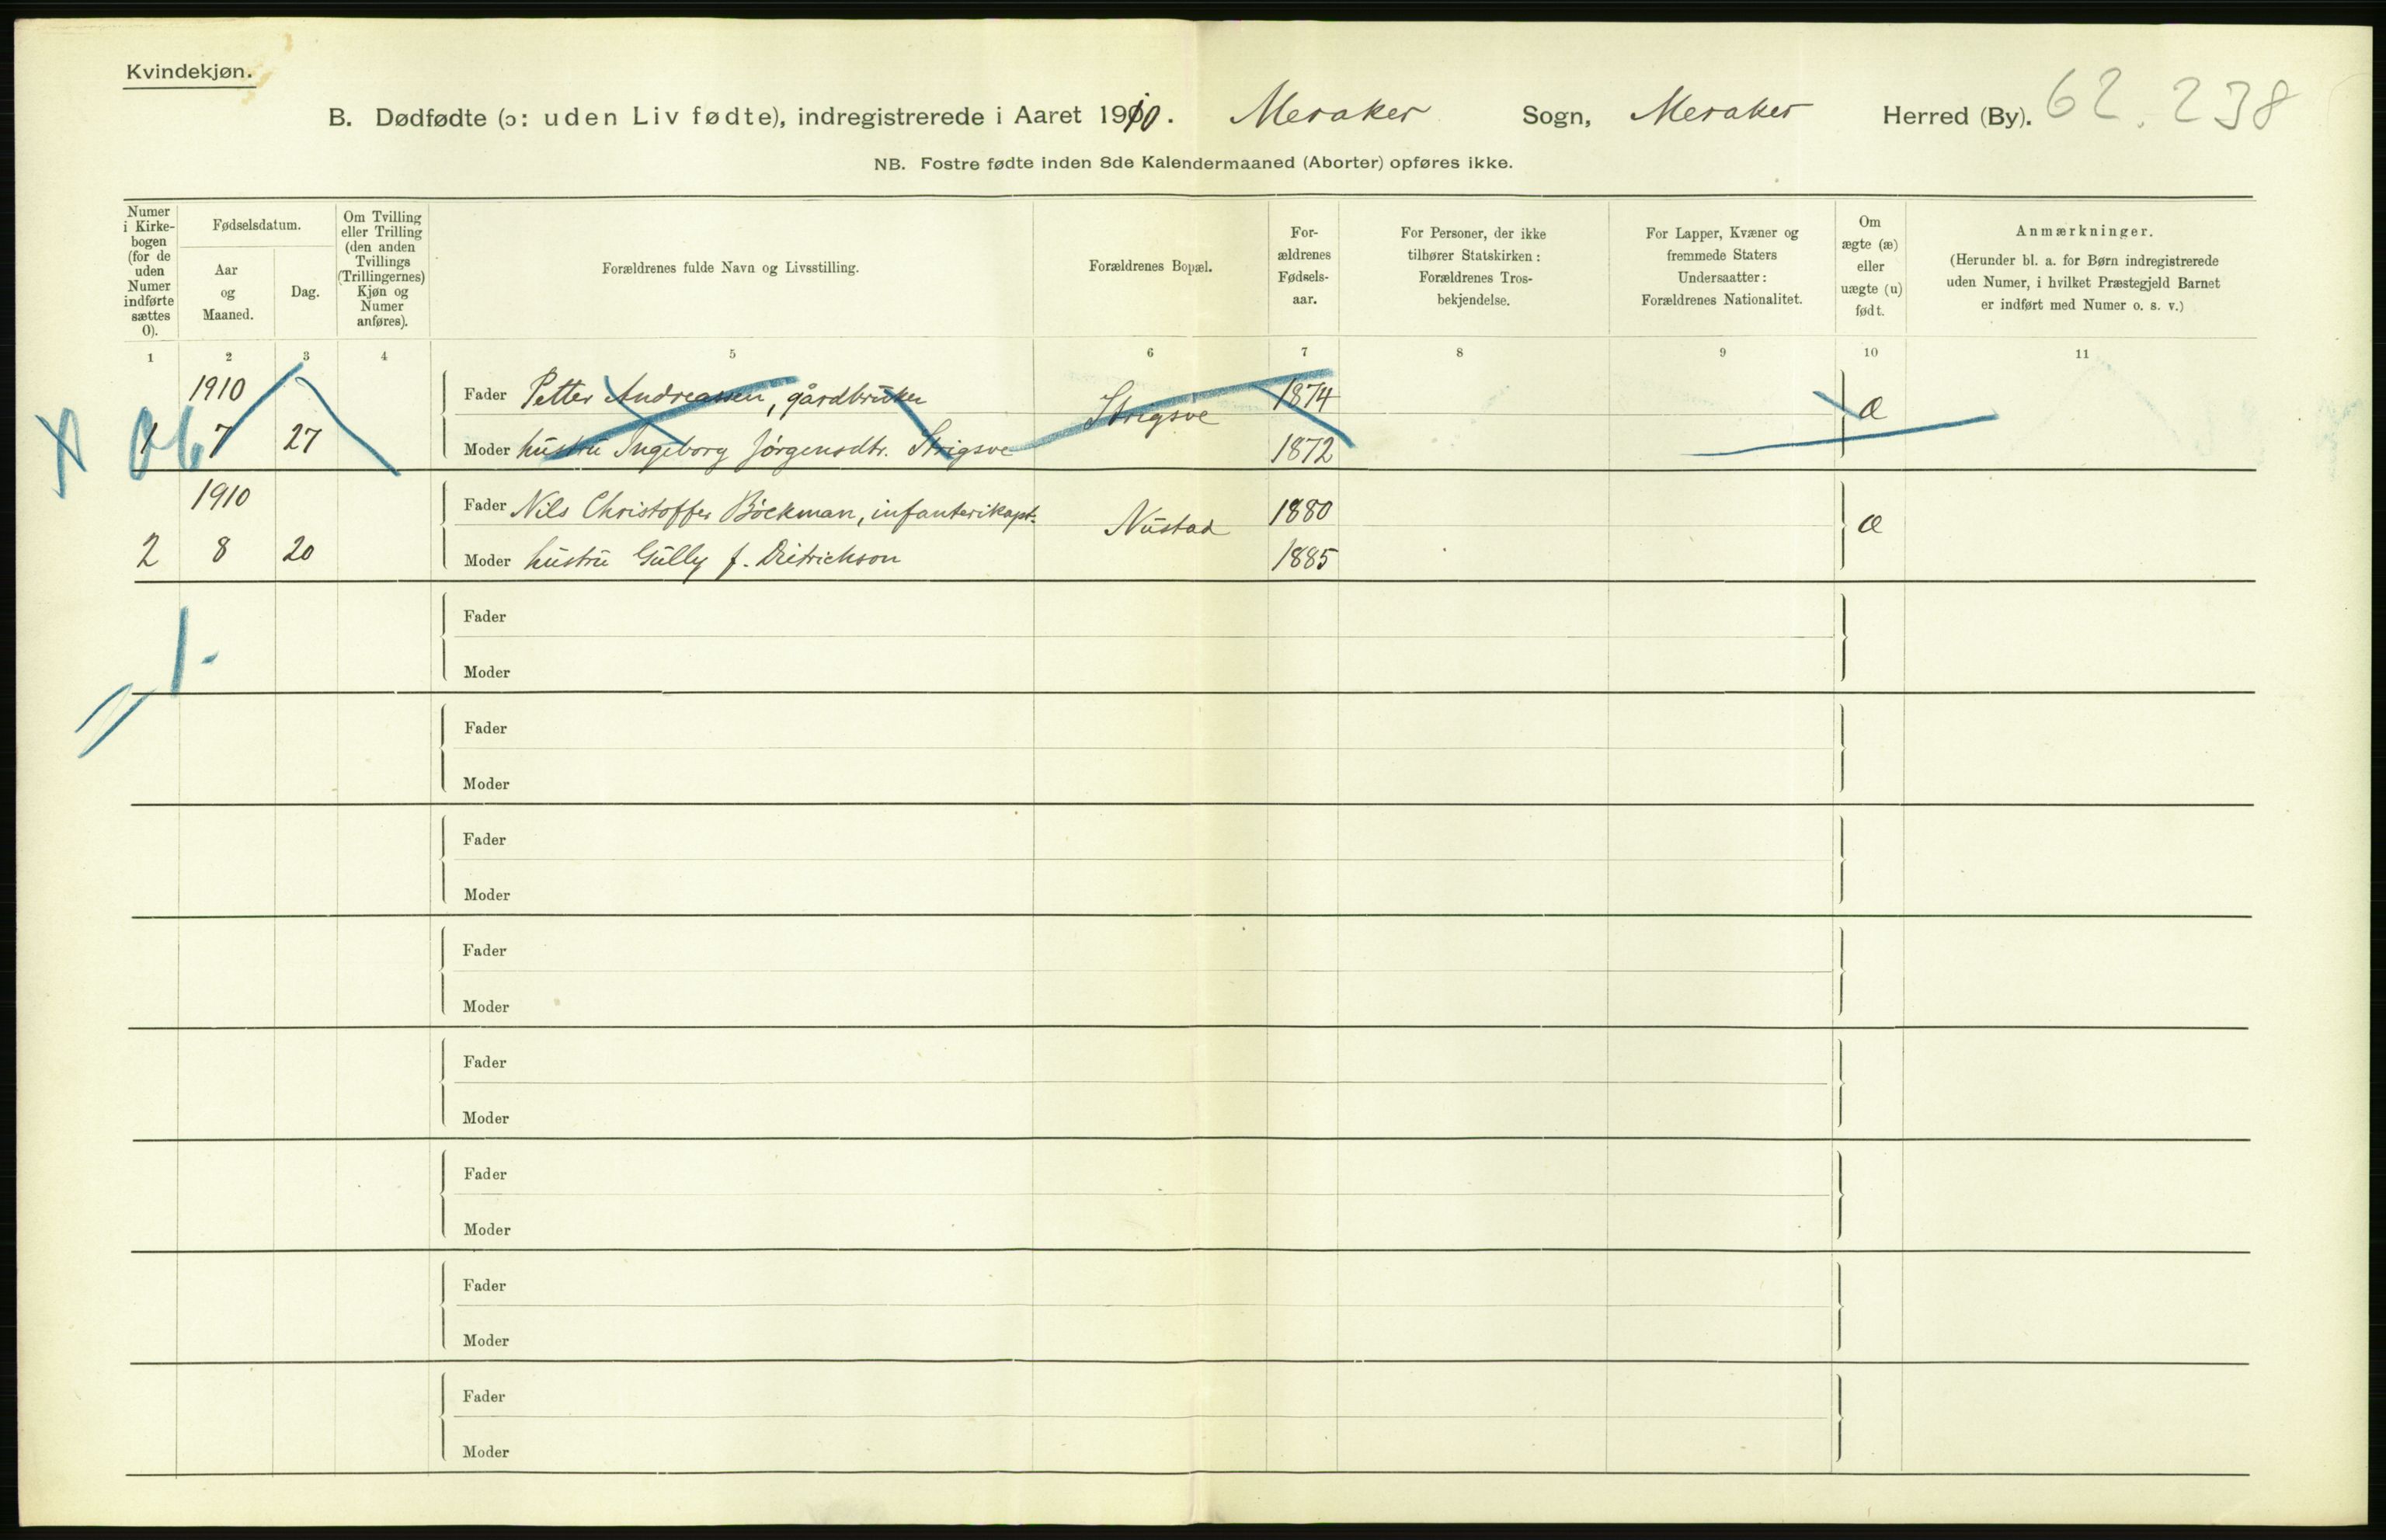 Kvindekjøn.
B. Dødfødte (ɔ: uden Liv fødte), indregistrerede i Aaret 1910. Meraker Sogn, Meraker Herred (By). 62. 238
NB. Fostre fødte inden 8de Kalendermaaned (Aborter) opføres ikke.
Numer i Kirke- bogen (for de uden Numer indførte sættes 0).
Fødselsdatum.
Aar og Maaned.
Dag.
Om Tvilling eller Trilling (den anden Tvillings (Trillingernes) Kjøn og Numer anføres).
Forældrenes fulde Navn og Livsstilling.
Forældrenes Bopæl.
For- ældrenes Fødsels- aar.
For Personer, der ikke tilhører Statskirken: Forældrenes Tros- bekjendelse.
For Lapper, Kvæner og fremmede Staters Undersaatter: Forældrenes Nationalitet.
Om ægte (æ) eller uægte (u) født.
Anmærkninger.
(Herunder bl. a. for Børn indregistrerede uden Numer, i hvilket Præstegjeld Barnet er indført med Numer o. s. v.)
1 2 3 4 5 6 7 8 9 10 11
1910 Fader Petter Andreassen, gårdbruker Strigsve 1874 æ
1 7 27 Moder hustru Ingeborg Jørgensdtr. Strigsve 1872
1910 Fader Nils Christoffer Böckman, infanterikapt. Nustad 1880 æ
2 8 20 Moder hustru Gully f. Dietrichson 1885
Fader
1.
Moder
Fader
Moder
Fader
Moder
Fader
Moder
Fader
Moder
Fader
Moder
Fader
Moder
Fader
Moder